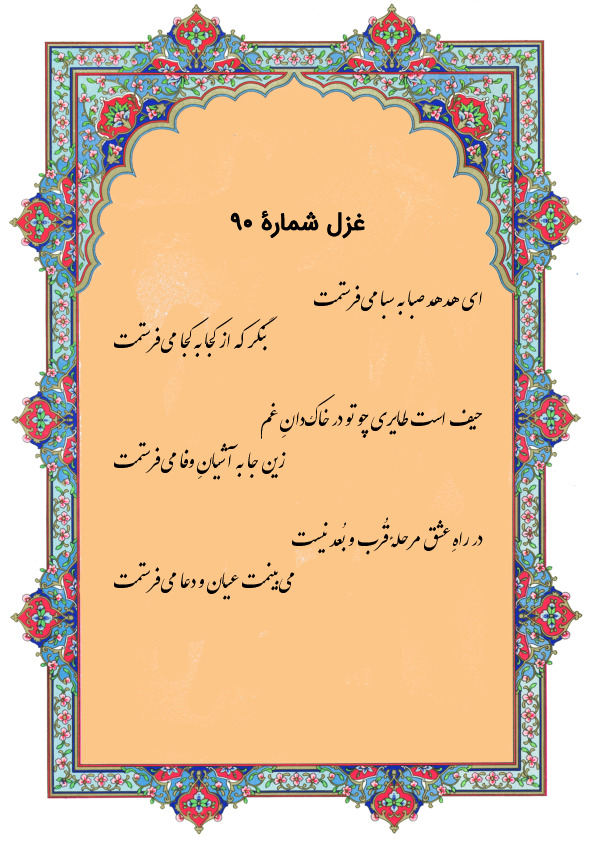 غزل شمارهٔ ۹۰
ای هدهد صبا به سبا می‌فرستمت
بنگر که از کجا به کجا می‌فرستمت
حیف است طایری چو تو در خاکدانِ غم
زین جا به آشیانِ وفا می‌فرستمت
در راهِ عشق مرحلهٔ قُرب و بُعد نیست
می‌بینمت عیان و دعا می‌فرستمت